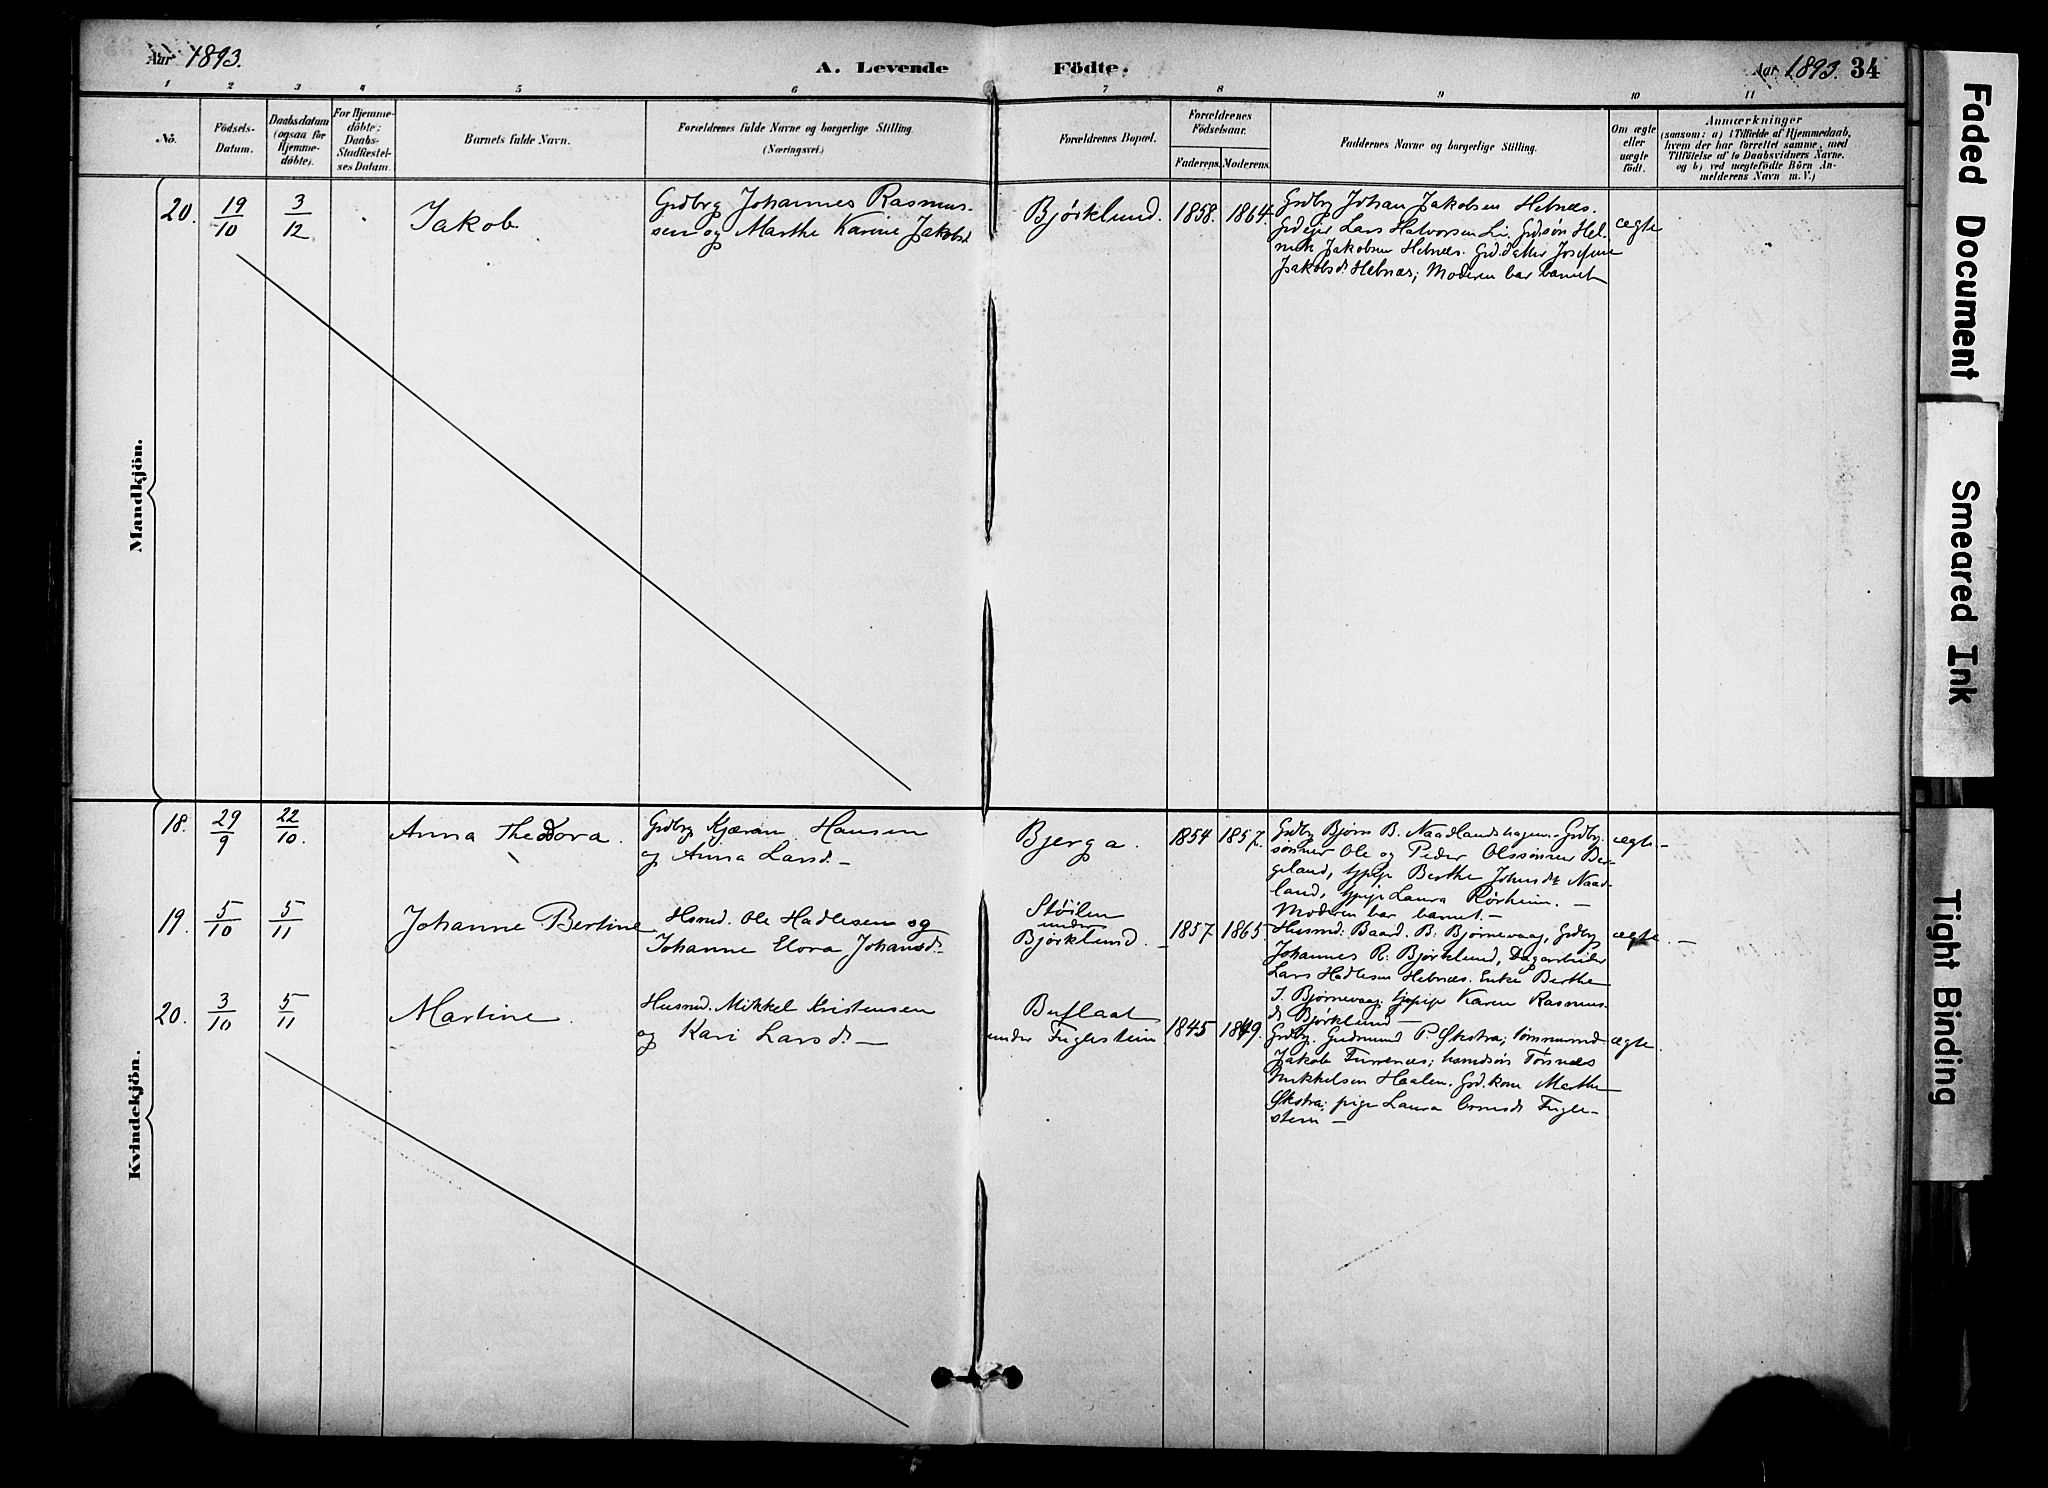 Aar 1893.
A. Levende Födte.
Aar 1893. 34
1 2 3 4 5 6 7 8 9 10 11
No.
Födsels-
Datum.
Daabsdatum
(ogsaa for
Hjemme-
döbte).
For Hjemme-
döbte;
Daabs-
Stadfæstel-
ses Datum.
Barnets fulde Navn.
Forældrenes fulde Navne og borgerlige Stilling.
(Næringsvei.)
Forældrenes Bopæl.
Forældrenes
Födselsaar.
Faderens. Moderens.
Faddernes Navne og borgerlige Stilling.
Om ægte
eller
uægte
födt.
Anmærkninger
(saasom: a) i Tilfælde af Hjemmedaab,
hvem der har forrettet samme, med
Tilföielse af to Daabsvidners Navne.
og b) ved uægtefödte Börn An-
melderens Navn m. V.)
Mandkjön.
20. 19/10 3/12 Jakob
Grdbrg Johannes Rasmus-
sen og Marthe Karine Jakobsd
Bjørklund. 1858. 1864.
Grdbrg Johan Jakobsen Hebnæs.
Grdejer Lars Halvorsen Li. Grd.søn Hel-
mik Jakobsen Hebnæs. Grd.datter Josefine
Jakobsd. Hebnæs; Moderen bar barnet
ægte
Kvindekjön.
18. 29/9 22/10. Anna Theodora.
Grdbrg Kjæran Hansen
og Anna Larsd. —
Bjerga. 1854 1857.
Grdbrg Bjørn B. Naadlandshagen. Grdbrg.
sønner Ole og Peder Olssønner Ber-
geland, tjpige Berthe Johnsdt. Naad-
land, tjpige Laura Rørheim. —
Moderen bar barnet. —
ægte —
19. 5/10 5/11 Johanne Bertine
Husmd. Ole Hadlesen og
Johanne Elora Johansd.
Støilen
under
Bjørklund. 1857 1865.
Husmd: Baard. B. Bjørnevaag, Grdbrg
Johannes R. Bjørklund, Dagarbeider
Lars Hadlesen Hebnæs. Enke Berthe
I. Bjørnevaag; tjpige Karen Rasmus-
d. Bjørklund —
ægte. —
20. 3/10 5/11 Martine.
Husmd. Mikkel Kristensen
og Kari Larsd. —
Buflaat
under Fuglestein 1845 1849.
Grdbrg. Gudmund P. Økstra; tømmermd
Jakob Furrenæs; Tøsnæs
Mikkelsen Haalen. Grd.kone Marthe
Økstra; pige Laura Fugle-
stein —
ægte.
Faded Document
Smeared Ink
Tight Binding